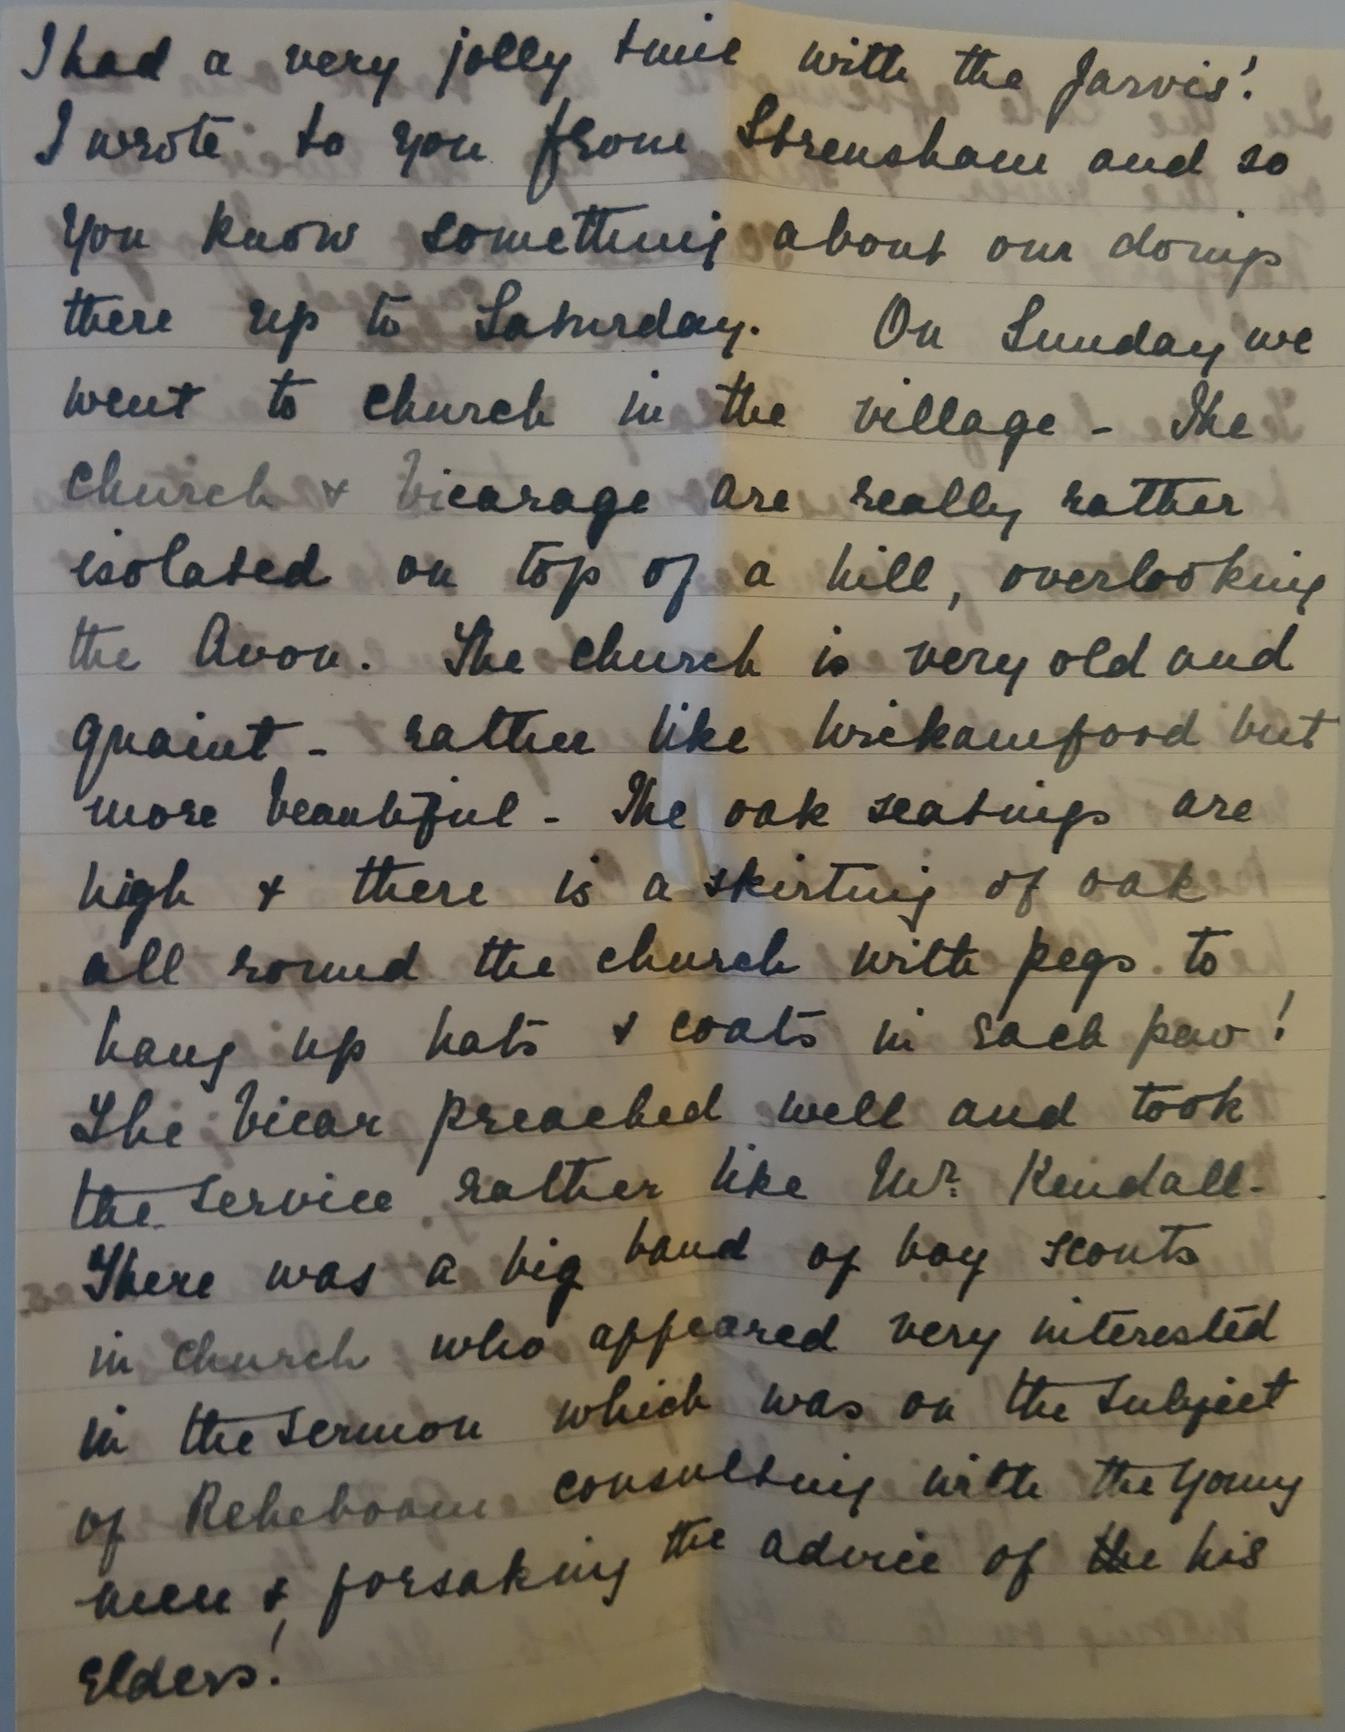 I had a very jolly time with the Jarvis'!
I wrote to you from Strensham and so
you know something about our doings
there up to Saturday. On Sunday we
went to church in the village - The
church & Vicarage are really rather
isolated on top of a hill, overlooking
the Avon. The church is very old and
quaint - rather like Wickamford but
more beautiful - The oak seatings are
high & there is a skirting of oak
all round the church with pegs to
hang up hats & coats in each pew!
The Vicar preached well and took
the service rather like Mr. Kendall -
There was a big band of boy scouts
in church who appeared very interested
in the sermon which was on the subject
of Reheboam consulting with the young
men & forsaking the advice of the his
elders!